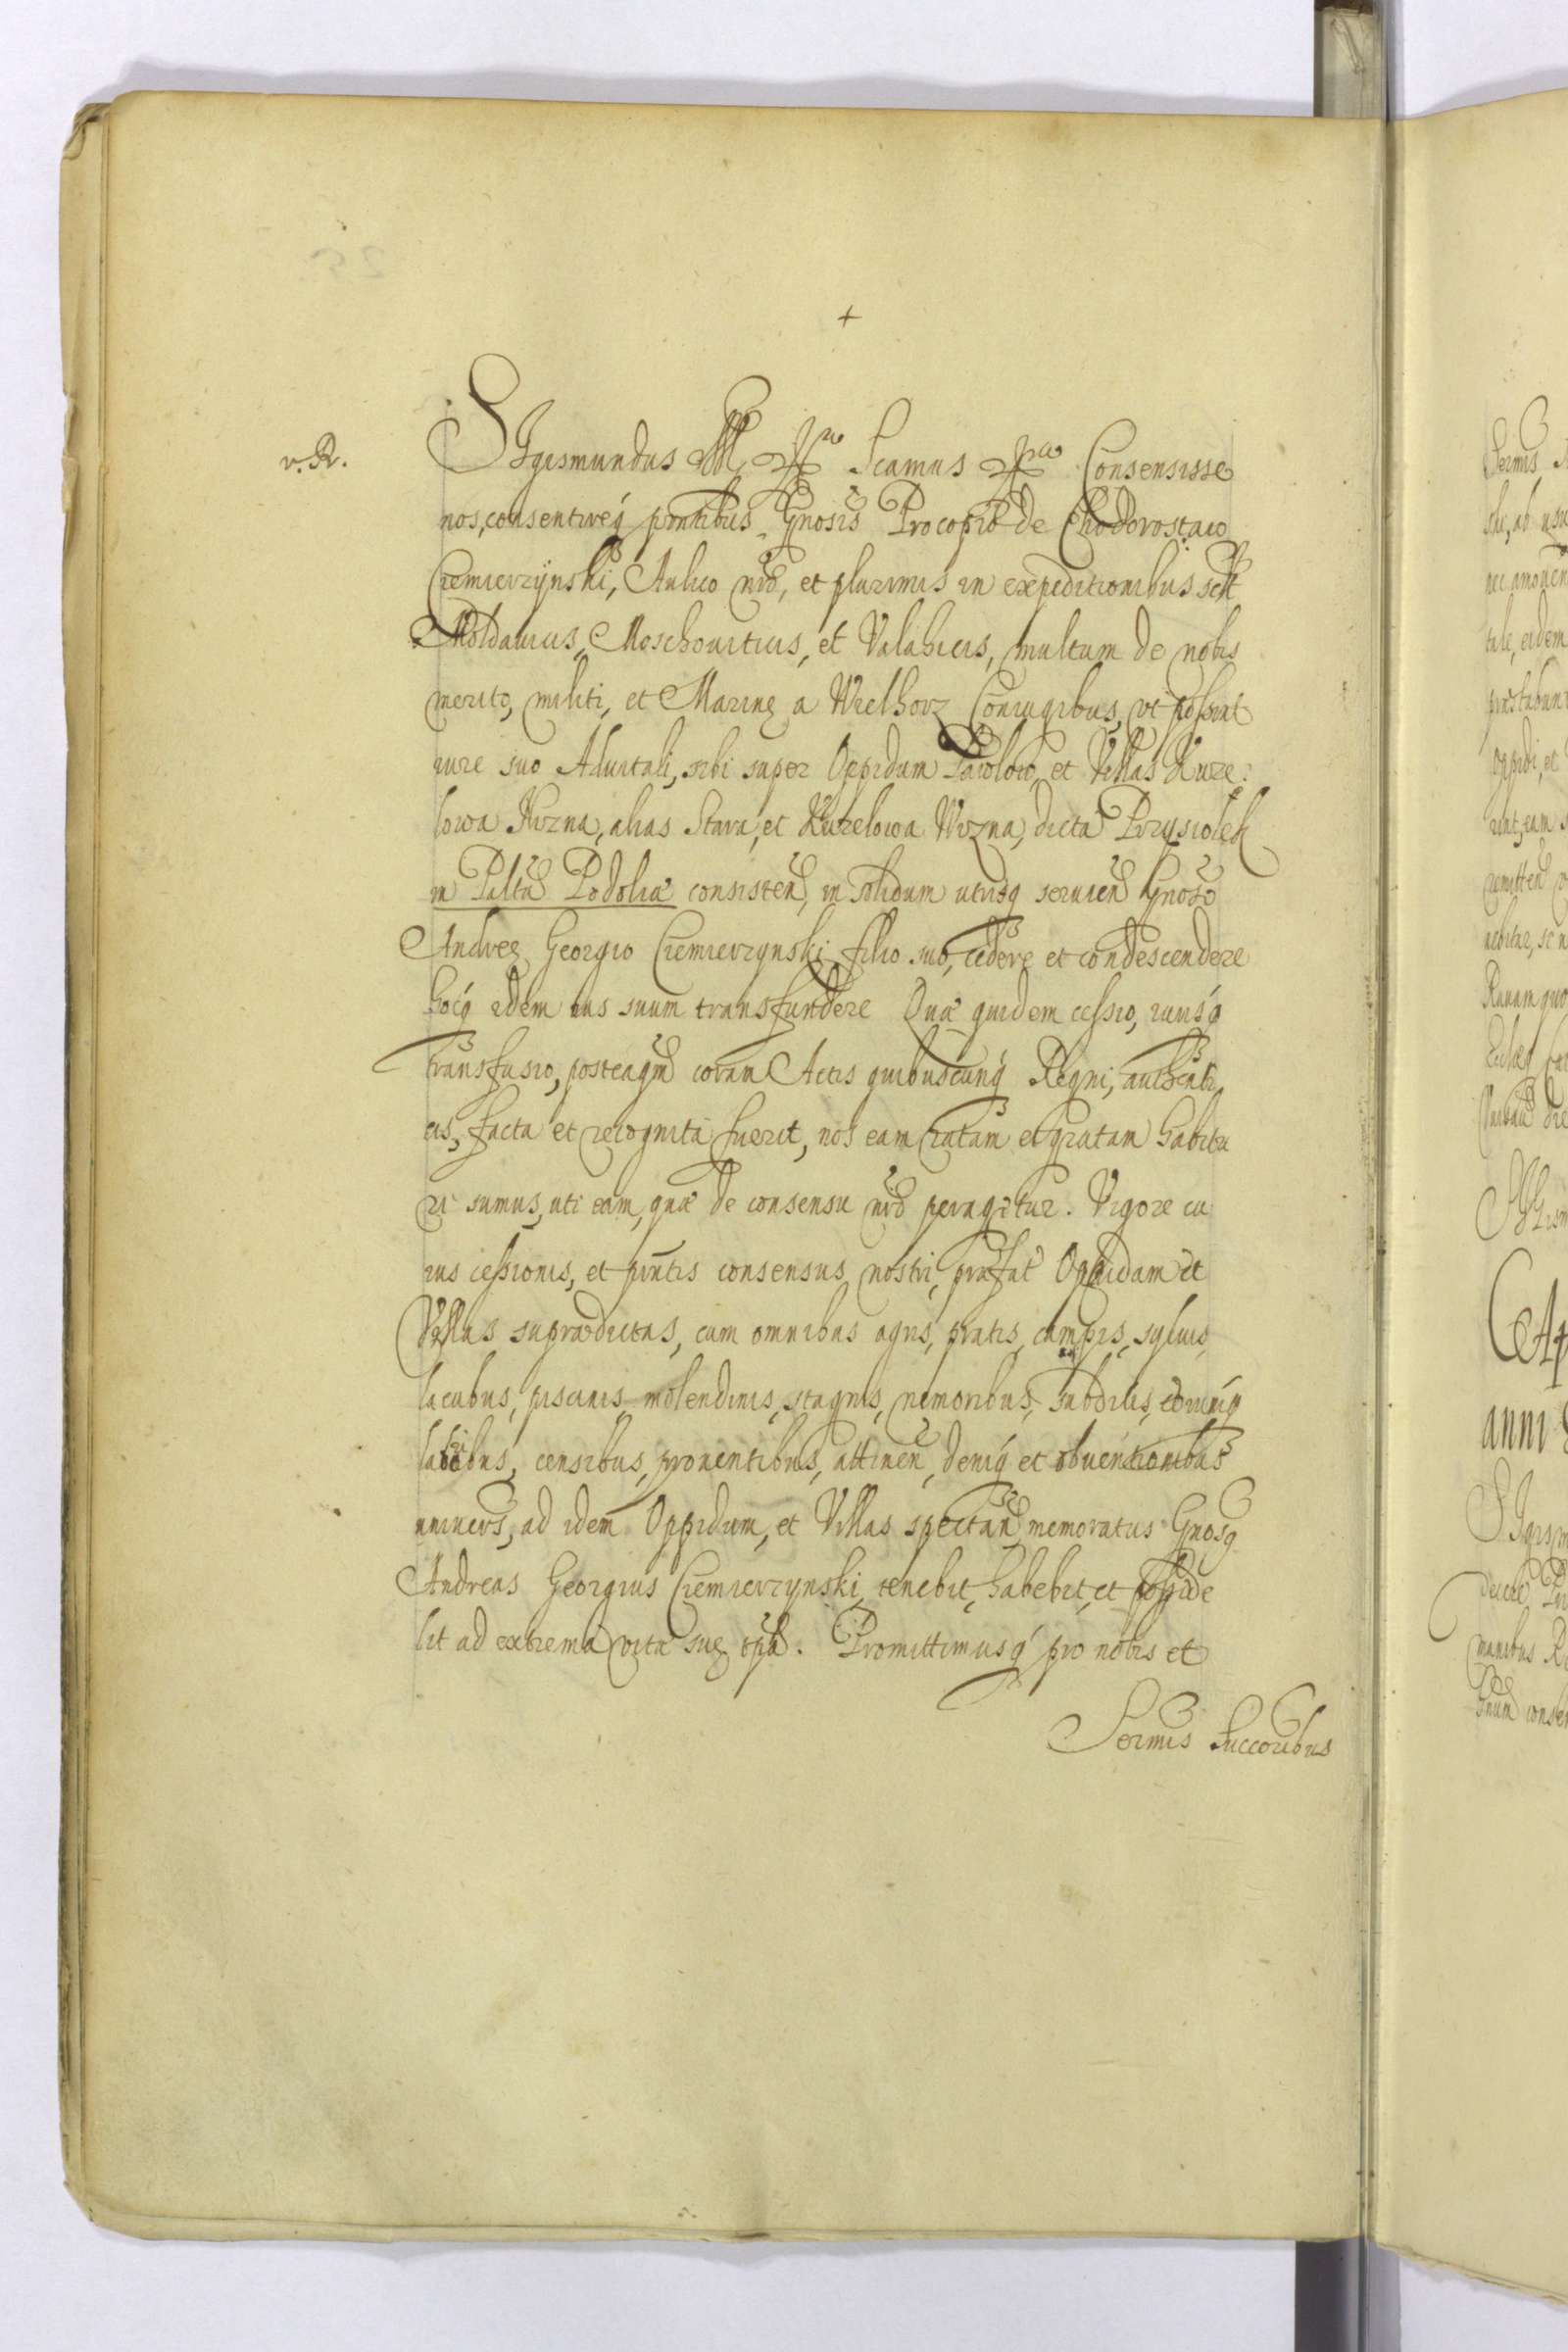 +
v. R.
SIgismundus III, Scamus Consensisse
nos, consentireq́ pṅtibus Gnosis Procopio de Chodorostaw
Czemierzynski, Aulico nr̃o, et plurimis in expeditionibus scilt
Moldauicis, Moschouiticis, et Valahicis, multum de nobis
merito, militi, et Marinę a Wielhorz Coniugibus, vt possint
iure suo Aduitali, sibi super Oppidum Pawlow, et Villas Kurze:
lowa Ruzna, alias Stara, et Kurzelowa Wuzna, dicta Przysiolek
in Palt̃u Podoliæ consisten̄, in solidum utrisq̃ seruien̄ Gnoso
Andreę Georgio Czemierzynski filio suo, cedere et condescendere
hocq́ idem ius suum transfundere Quæ quidem cessio, iurisq́
transfusio, posteaqm̃ coram Actis quibuscunq́ Regni, authenti
cis, facta et recognita fuerit, nos eam ratam et gratam habitu
ri sumus, uti eam, quæ de consensu nr̃o peragitur. Vigore cu
ius cessionis, et pṅtis consensus nostri, præfat Oppidum et
Villas supradictas, cum omnibus agris, pratis, campis, syluis,
lacubus, piscinis, molendinis, stagnis, nemoribus, subditis, eorumq́
laboribus, censibus, prouentibus, attinen̄, deniq́ et obuentionibus
uniuers, ad idem Oppidum, et Villas spectan̄, memoratus Gnosq
Andreas Georgius Czemierzynski, tenebit, habebit, et posside
bit ad extrema vitæ suę tp̃a. Promittimusq́ pro nobis et
Sermis Succoribus